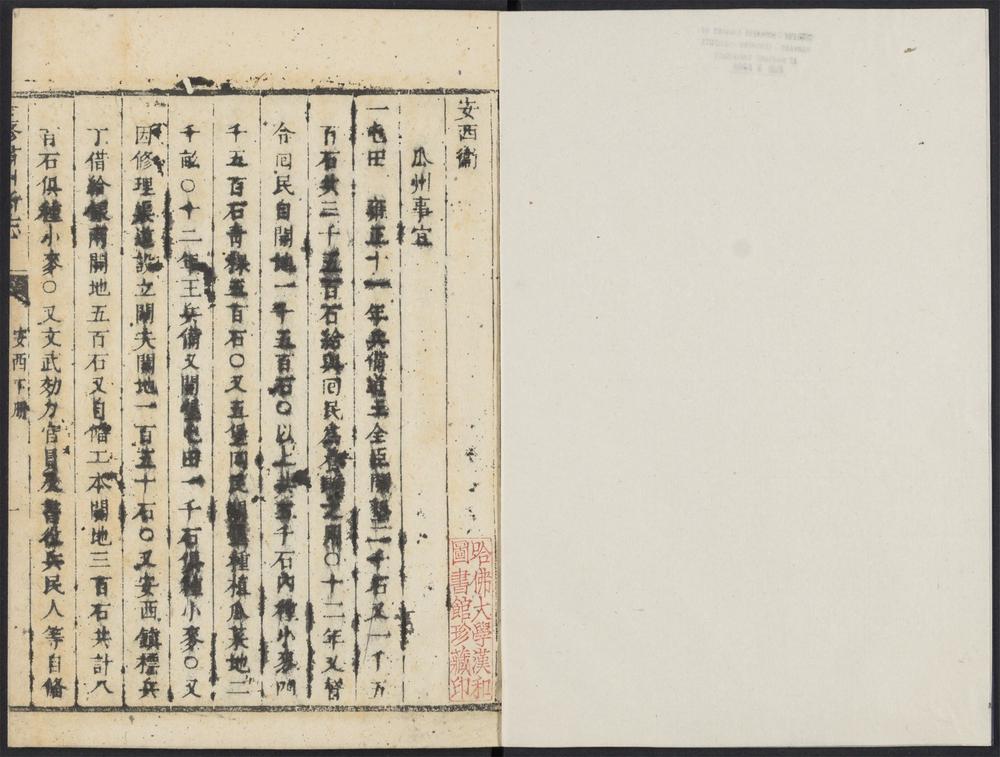 安西衛
瓜州事宜
一屯田 雍正十一年兵備道王全臣開墾二千石又一千五
百石共三千五百石給與回民為養贍之用〇十二年又督
令回民自開地一千五百石〇以上共五千石內種小麥四
千五百石青稞五百石〇又五堡回民種植瓜菜地二
千畝〇十二年王兵備又開屯田一千石俱種小麥〇又
因修理渠道設立閘夫開地一百五十石〇又安西鎮標兵
丁借給銀兩開地五百石又自備工本開地三百石共計八
百石俱種小麥〇又文武効力官員及書役兵民人等自備
重修肅州新志
安西下册
一
哈佛大學漢和
圖書館珍藏印